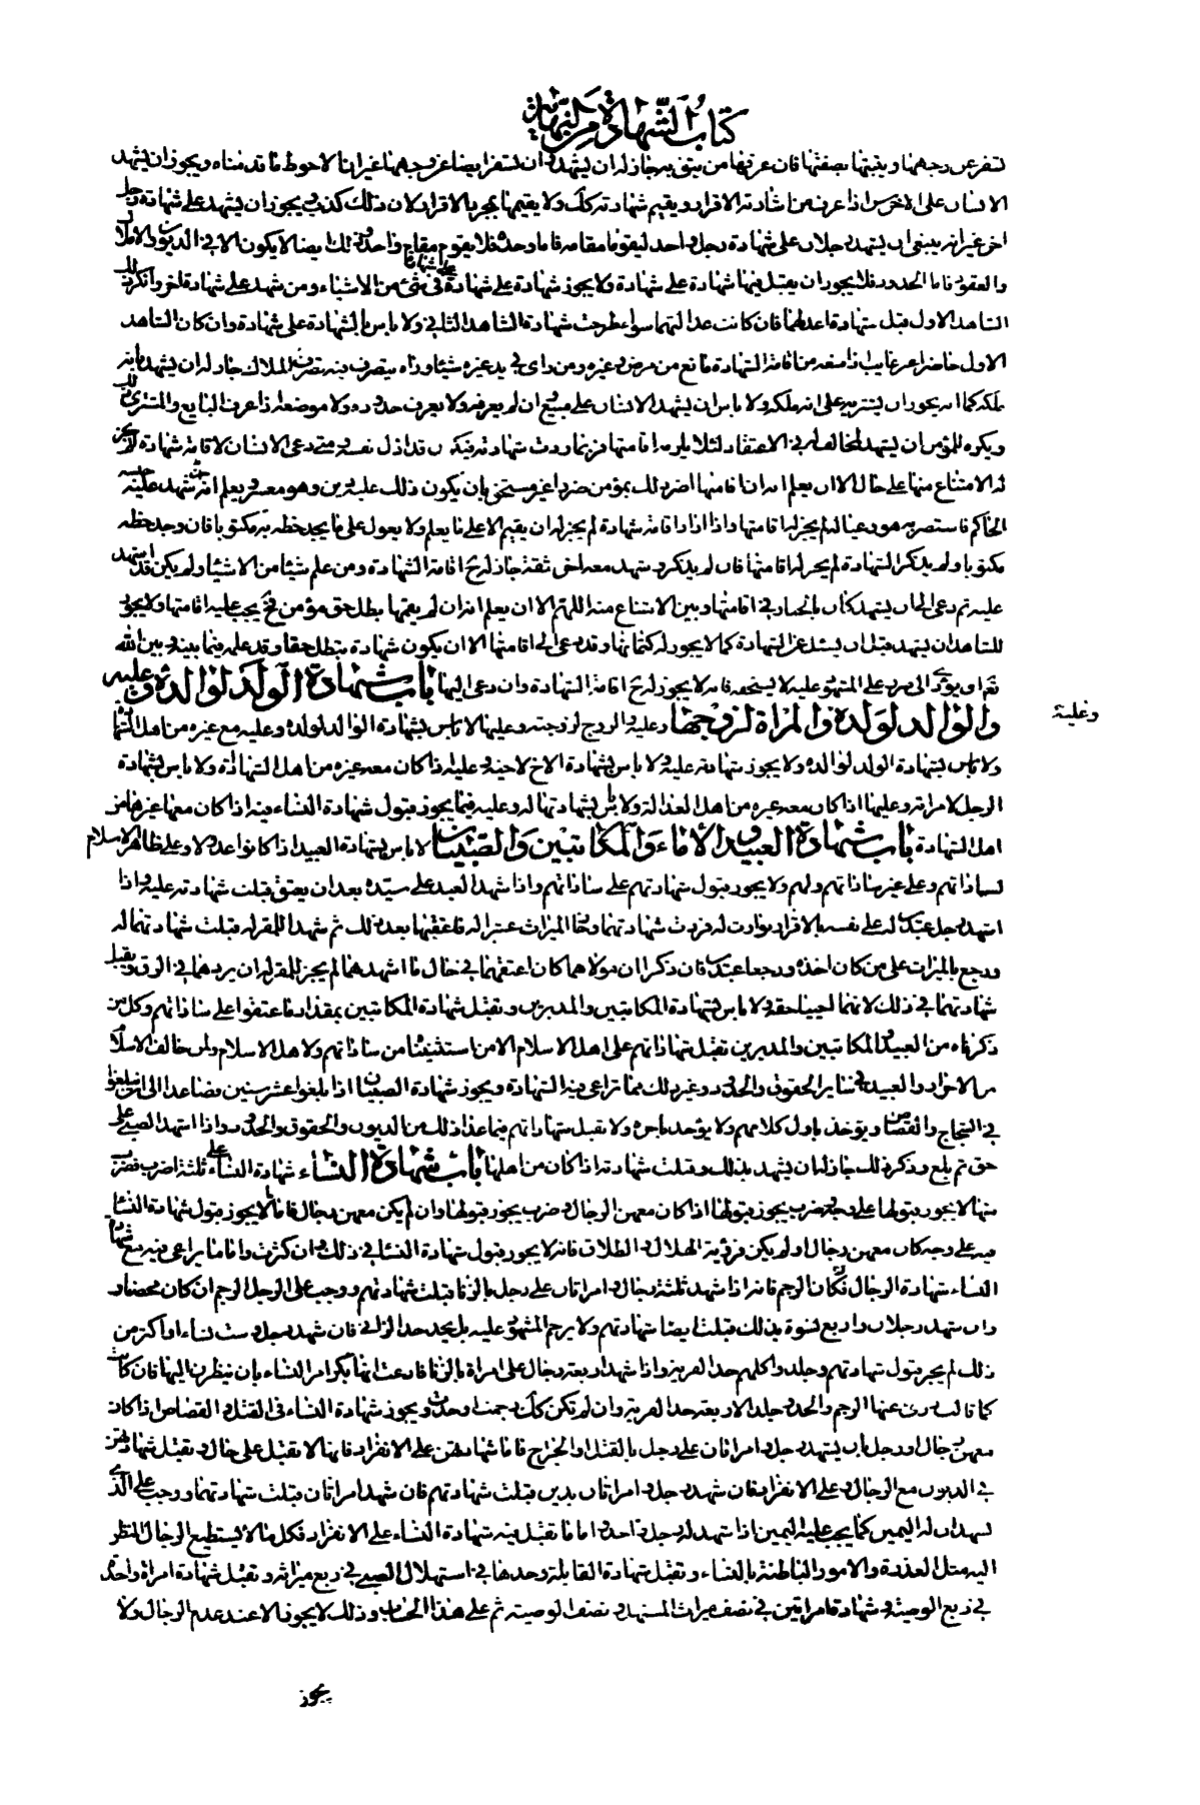 كتاب الشهادة من النهاية
تسفر عن وجهها ويثبتها بصفتها فان عرفها من يثق به جاز له ان يشهد وان لم تسفر ايضا عن وجهها غير ان الاحوط ما قدمناه ويجوز ان يشهد
الانسان على الاخرس اذا عرف من اشارته الاقرار ويقيم شهادته كك ولا يقيمها بمجرد الاقرار لان ذلك كذب ويجوز ان يشهد على شهادة رجل
اخر غير انه ينبغى ان يشهد رجلان على شهادة رجل واحد ليقوما مقامه فاما وحده فلا يقوم مقام واحد وذلك ايضا لا يكون الا فى الديون والاملاك
والعقود فاما الحدود فلا يجوز ان يقبل فيها شهادة على شهادة ولا يجوز شهادة على شهادة على شهادة فى شئ من الاشياء ومن شهد على شهادة اخر وانكر ذلك
الشاهد الاول قبل شهادة اعدلهما فان كانت عدالتهما سواء طرحت شهادة الشاهد الثانى ولا باس بالشهادة على شهادة وان كان الشاهد
الاول حاضرا غير غايب اذا منعه من اقامة الشهادة مانع من مرض وغيره ومن راى فى يد غيره شيئا وراه يتصرف فيه تصرف الملاك جاز له ان يشهد بانه
ملكه كما انه يجوز ان يشتريه على انه ملكه ولا باس ان يشهد الانسان على مبيع ان لم يعرفه ولا يعرف حدوده ولا موضعه اذا عرف البايع والمشترى ذلك
ويكره للمؤمن ان يشهد لمخالف له فى الاعتقاد لئلا يلزمه اقامتها فربما ردت شهادته فيكون قد اذل نفسه ومتى دعى الانسان لاقامة شهادة لم يجز
له الامتناع منها على حال الا ان يعلم انه ان اقامها اضر ذلك بمؤمن ضررا غير مستحق بان يكون ذلك عليه دين وهو معسر ويعلم انه متى شهد عليه حبسه
الحاكم فاستضر به هو وعياله لم يجز له اقامتها واذا اراد اقامة شهادة لم يجز له ان يقيم الا على ما يعلم ولا يعول على ما يجد خطه به مكتوبا فان وجد خطه
مكتوبا ولم يذكر الشهادة لم يجز له اقامتها فان لم يذكر وشهد معه اخر ثقة جاز له ح اقامة الشهادة ومن علم شيئا من الاشياء ولم يكن قد اشهد
عليه ثم دعى الى ان يشهد كان بالخيار فى اقامتها وبين الامتناع منه اللهم الا ان يعلم انه ان لم يقمها بطل حق مؤمن فح يجب عليه اقامتها ولا يجوز
للشاهد ان يشهد قبل ان يسئل عن الشهادة كما لا يجوز له كتمانها وقد دعى الى اقامتها الا ان يكون شهادة يبطل حقا وقد علمه فيما بينه وبين الله
تعم او يؤدى الى ضرر على المشهود عليه لا يستحقه فانه لا يجوز له ح اقامة الشهادة وان دعى اليها باب شهادة الولد لوالده وعليه
والوالد لولده والمراة لزوجها وعليه والزوج لزوجته وعليها لا باس بشهادة الوالد لولده وعليه مع غيره من اهل الشهادة
وعليه
ولا باس بشهادة الولد لوالده ولا يجوز شهادته عليه ولا باس بشهادة الاخ لاخيه وعليه اذا كان معه غيره من اهل الشهادة ولا باس بشهادة
الرجل لامراته وعليها اذا كان معه غيره من اهل العدالة ولا باس بشهادتها له وعليه فيما يجوز قبول شهادة النساء فيه اذا كان معها غيرها من
اهل الشهادة باب شهادة العبيد والاماء والمكاتبين والصبيان لا باس بشهادة العبيد اذا كانوا عدولا وعلى ظاهر الاسلام
لساداتهم وعلى غير ساداتهم ولهم ولا يجوز قبول شهادتهم على ساداتهم واذا شهد العبد على سيده بعد ان يعتق قبلت شهادته عليه واذا
اشهد رجل عبدين له على نفسه بالاقرار بوارث له فردت شهادتهما وحاز الميراث غير المقر له فاعتقهما بعد ذلك ثم شهدا للمقر له قبلت شهادتهما له
ورجع بالميراث على من كان اخذه ورجعا عبدين فان ذكرا ان مولاهما كان اعتقهما فى حال ما اشهدهما لم يجز للمقر له ان يردهما فى الرق ويقبل
شهادتهما فى ذلك لانهما احييا حقه ولا باس بشهادة المكاتبين والمدبرين وتقبل شهادة المكاتبين بمقدار ما عتقوا على ساداتهم وكل من
ذكرناه من العبيد والمكاتبين والمدبرين تقبل شهاداتهم على اهل الاسلام الا من استثنيناه من ساداتهم ولاهل الاسلام ولمن خالف الاسلام
من الاحرار والعبيد فى ساير الحقوق والحدود وغير ذلك مما تراعى فيه الشهادة ويجوز شهادة الصبيان اذا بلغوا عشر سنين فصاعدا الى ان يبلغوا
فى الشجاج والقصاص ويؤخذ باول كلامهم ولا يؤخذ باخره ولا تقبل شهاداتهم فيما عدا ذلك من الديون والحقوق والحدود واذا اشهد الصبى على
حق ثم بلغ وذكر ذلك جاز له ان يشهد بذلك وقبلت شهادته اذا كان من اهلها باب شهادة النساء شهادة النساء على ثلثة اضرب فضرب
منها لا يجوز قبولها على وجه وضرب يجوز قبولها اذا كان معهن الرجال وضرب يجوز قبولها وان لم يكن معهن رجال فاما ما لا يجوز قبول شهادة النساء
فيه على وجه كان معهن رجال او لم يكن فرؤية الهلال والطلاق فانه لا يجوز قبول شهادة النساء فى ذلك وان كثرن واما ما يراعى فيه مع شهادة
النساء شهادة الرجال فكان الرجم فانه اذا شهد ثلثة رجال وامراتان على رجل بالزنا قبلت شهادتهم ووجب على الرجل الرجم ان كان محصنا و
ان شهد رجلان واربع نسوة بذلك قبلت ايضا شهادتهم ولا يرجم المشهود عليه بل يحد حد الزانى فان شهد رجل وست نساء او اكثر من
ذلك لم يجز قبول شهادتهم وجلد واكلهم حد الفرية واذا شهد اربعة رجال على امراة بالزنا فادعت انها بكر امر النساء بان ينظرن اليها فان كانت
كما قالت درئ عنها الرجم والحد وجلد الاربعة حد الفرية وان لم تكن كك رجمت او حدت ويجوز شهادة النساء فى القتل والقصاص اذا كان
معهن رجال او رجل بان يشهد رجل وامراتان على رجل بالقتل او الجراح فاما شهادتهن على الانفراد فانها لا تقبل على حال وتقبل شهادتهن
فى الديون مع الرجال وعلى الانفراد فان شهد رجل وامراتان بدين قبلت شهادتهم فان شهد امراتان قبلت شهادتهما ووجب على الذى
تشهدان له اليمين كما يجب عليه اليمين اذا شهد له رجل واحد واما ما تقبل فيه شهادة النساء على الانفراد فكل ما لا يستطيع الرجال النظر
اليه مثل العذرة والامور الباطنة بالنساء وتقبل شهادة القابلة وحدها فى استهلال الصبى فى ربع ميراثه وتقبل شهادة امراة واحدة
فى ربع الوصية وشهادة امراتين فى نصف ميراث المستهل ونصف الوصية ثم على هذا الحساب وذلك لا يجوز الا عند عدم الرجال ولا
يجوز